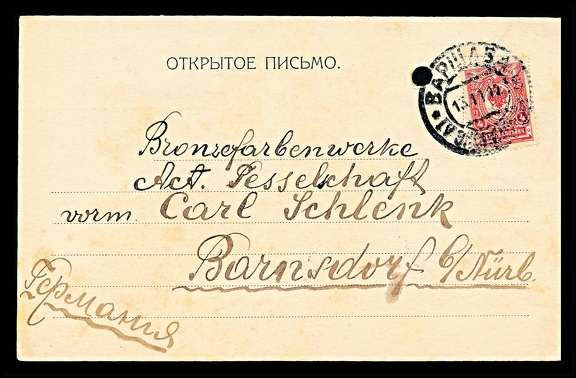 ОТКРЫТОЕ ПИСЬМО.
ВАРШАВА
13.11.12
Bronzefarbenwerke
Act. Gesselschaft
vorm Carl Schlenk
Barnsdorf b/Nürb.
Германия